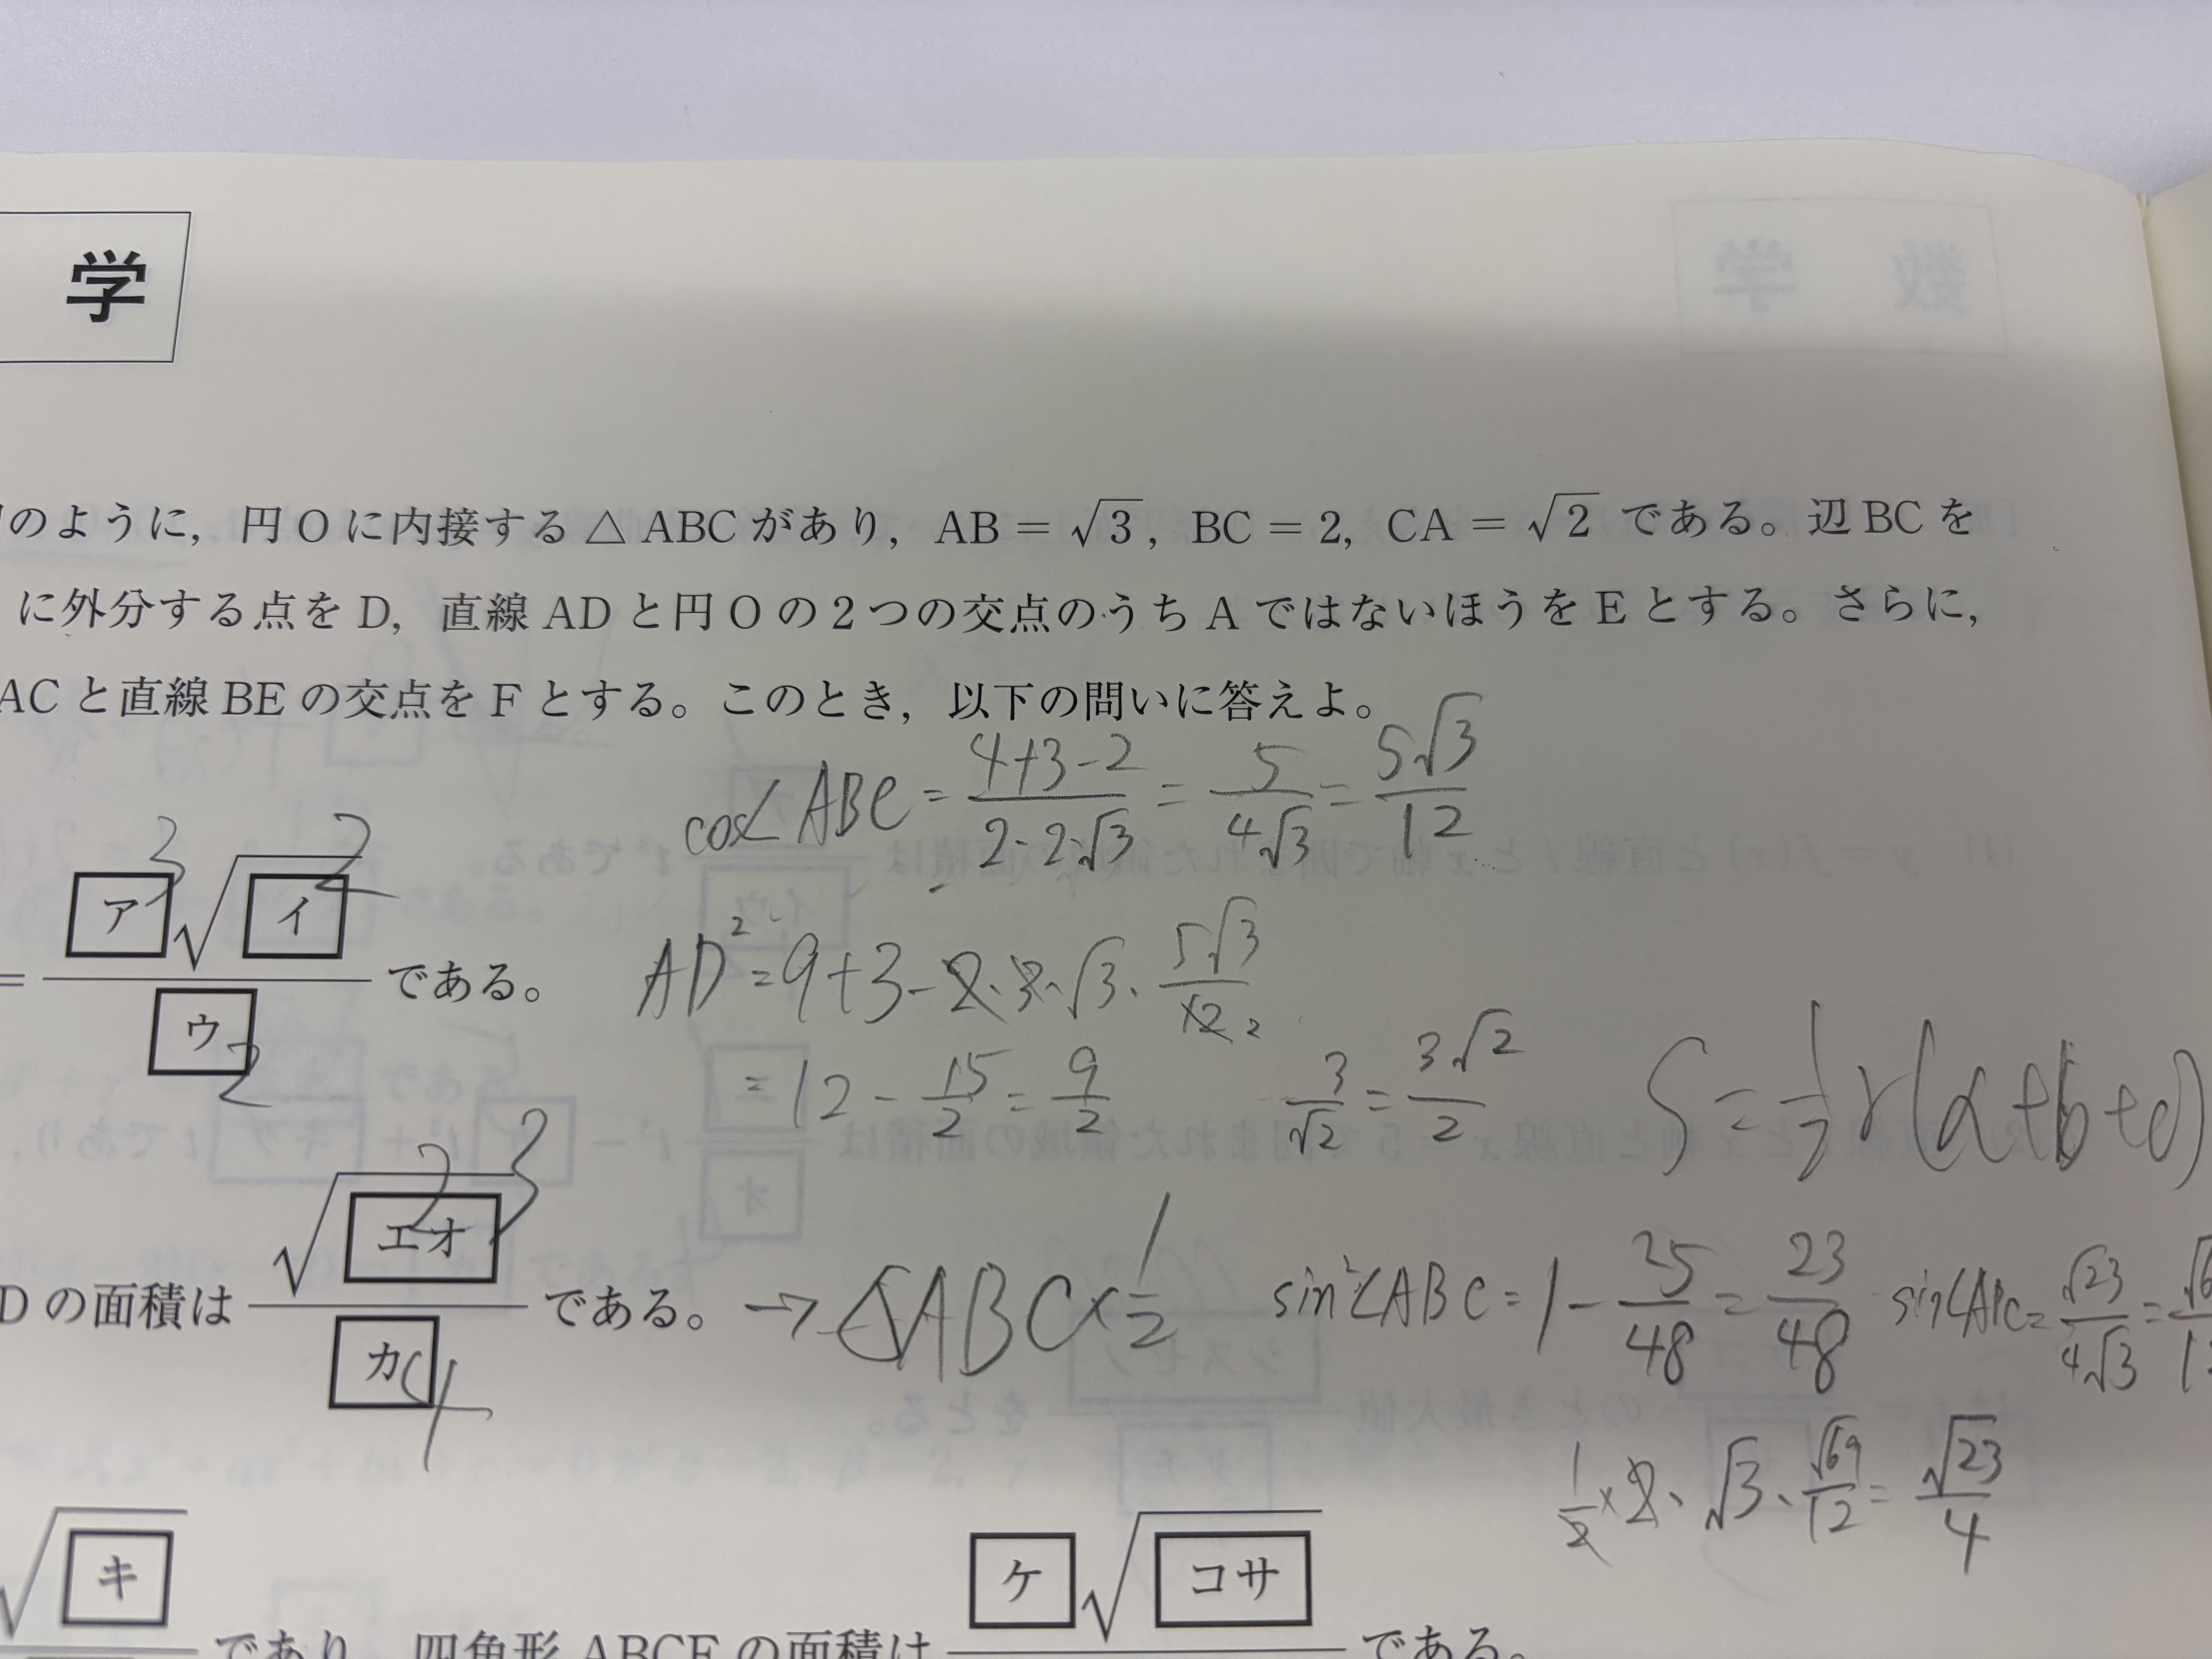 学
のように, 円 O に内接する △ ABC があり, AB = √3, BC = 2, CA = √2 である。辺 BC を
に外分する点を D, 直線 AD と円 O の 2 つの交点のうち A ではないほうを E とする。さらに,
AC と直線 BE の交点を F とする。このとき, 以下の問いに答えよ。
cos∠ABC = (4+3-2)/(2・2√3) = 5/(4√3) = 5√3/12
= ア√イ/ウ である。
3 2
2
AD² = 9+3-2・3・√3・5√3/12 2
= 12 - 15/2 = 9/2
3/√2 = 3√2/2
S = 1/2 r(a+b+c)
D の面積は √エオ/カ である。
23
4
→ △ABC×1/2
sin²∠ABC = 1 - 25/48 = 23/48
sin∠ABC = √23/(4√3) =
1/2×2・√3・√69/12 = √23/4
√キ
であり, 四角形 ABCE の面積は ケ√コサ である。